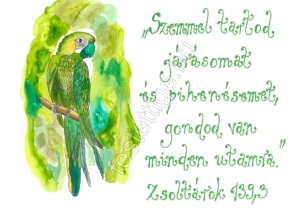 „Szemmel tartod
járásomat
és pihenésemet,
gondod van
minden utamra."
Zsoltárok 139,3